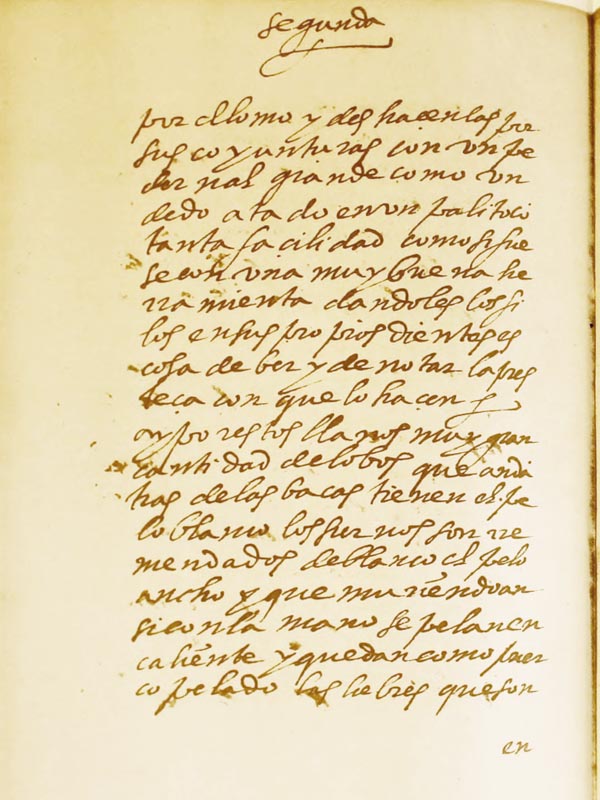 segunda
por el lomo y des hacenlas por
sus co yunturas con un pe
der nal grande como un
dedo a ta do en un palito co
tanta facilidad como si fue
se con una muy buena he
rra mienta dandoles los fi
los en sus pro prios dientes es
cosa de ber y de notar la pres
teça con que lo hacen
ay por estos llanos muy gran
cantidad de lobos que anda
tras de las bacas tienen el pe
lo blanco los siervos son rre
mendados de blanco el pelo
ancho y que muriendo an
si con la mano se pelan en
caliente y quedan como puer
co pelado las liebres que son
en